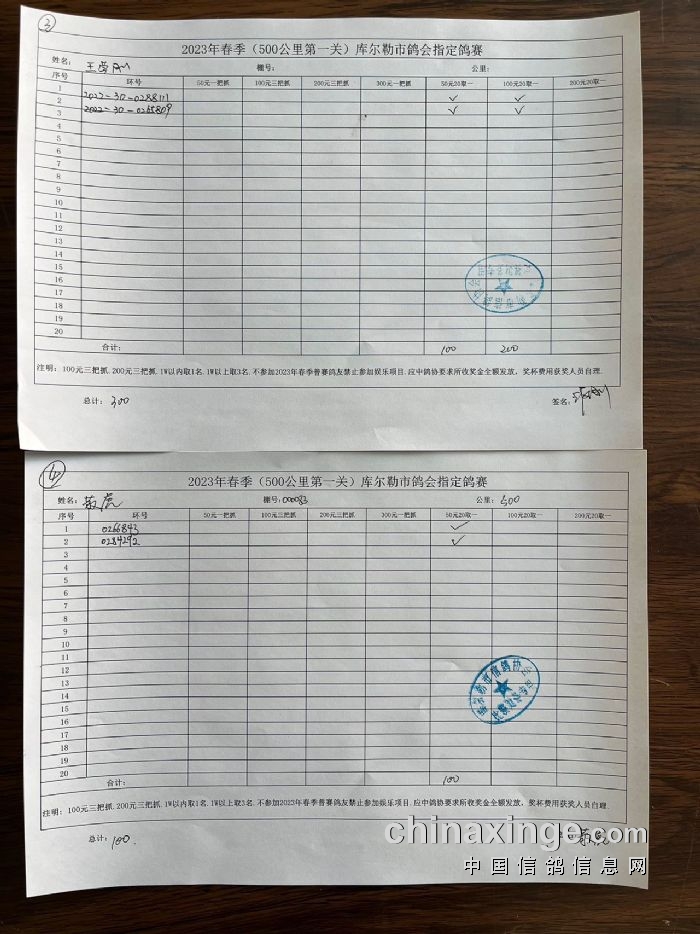 ③
2023年春季（500公里第一关）库尔勒市鸽会指定鸽赛
姓名: 棚号: 公里:
序号 环号 50元一把抓 100元三把抓 200元三把抓 300元一把抓 50元20取一 100元20取一 200元20取一
1
2 2022-30-0288111 ✓ ✓
3 2022-30-0265809 ✓ ✓
4
5
6
7
8
9
10
11
12
13
14
15
16
17
18
19
20
合计: 100 200
注明: 100元三把抓. 200元三把抓. 1W以内取1名. 1W以上取3名. 不参加2023年春季普赛鸽友禁止参加娱乐项目. 应中鸽协要求所收奖金全额发放, 奖杯费用获奖人员自理.
总计: 300 签名:
④
2023年春季（500公里第一关）库尔勒市鸽会指定鸽赛
姓名: 棚号: 000083 公里: 500
序号 环号 50元一把抓 100元三把抓 200元三把抓 300元一把抓 50元20取一 100元20取一 200元20取一
1 0266843 ✓
2 0284292 ✓
3
4
5
6
7
8
9
10
11
12
13
14
15
16
17
18
19
20
合计: 100
注明: 100元三把抓. 200元三把抓. 1W以内取1名. 1W以上取3名. 不参加2023年春季普赛鸽友禁止参加娱乐项目. 应中鸽协要求所收奖金全额发放, 奖杯费用获奖人员自理.
总计: 100.
chinaxinge.com
中国信鸽信息网